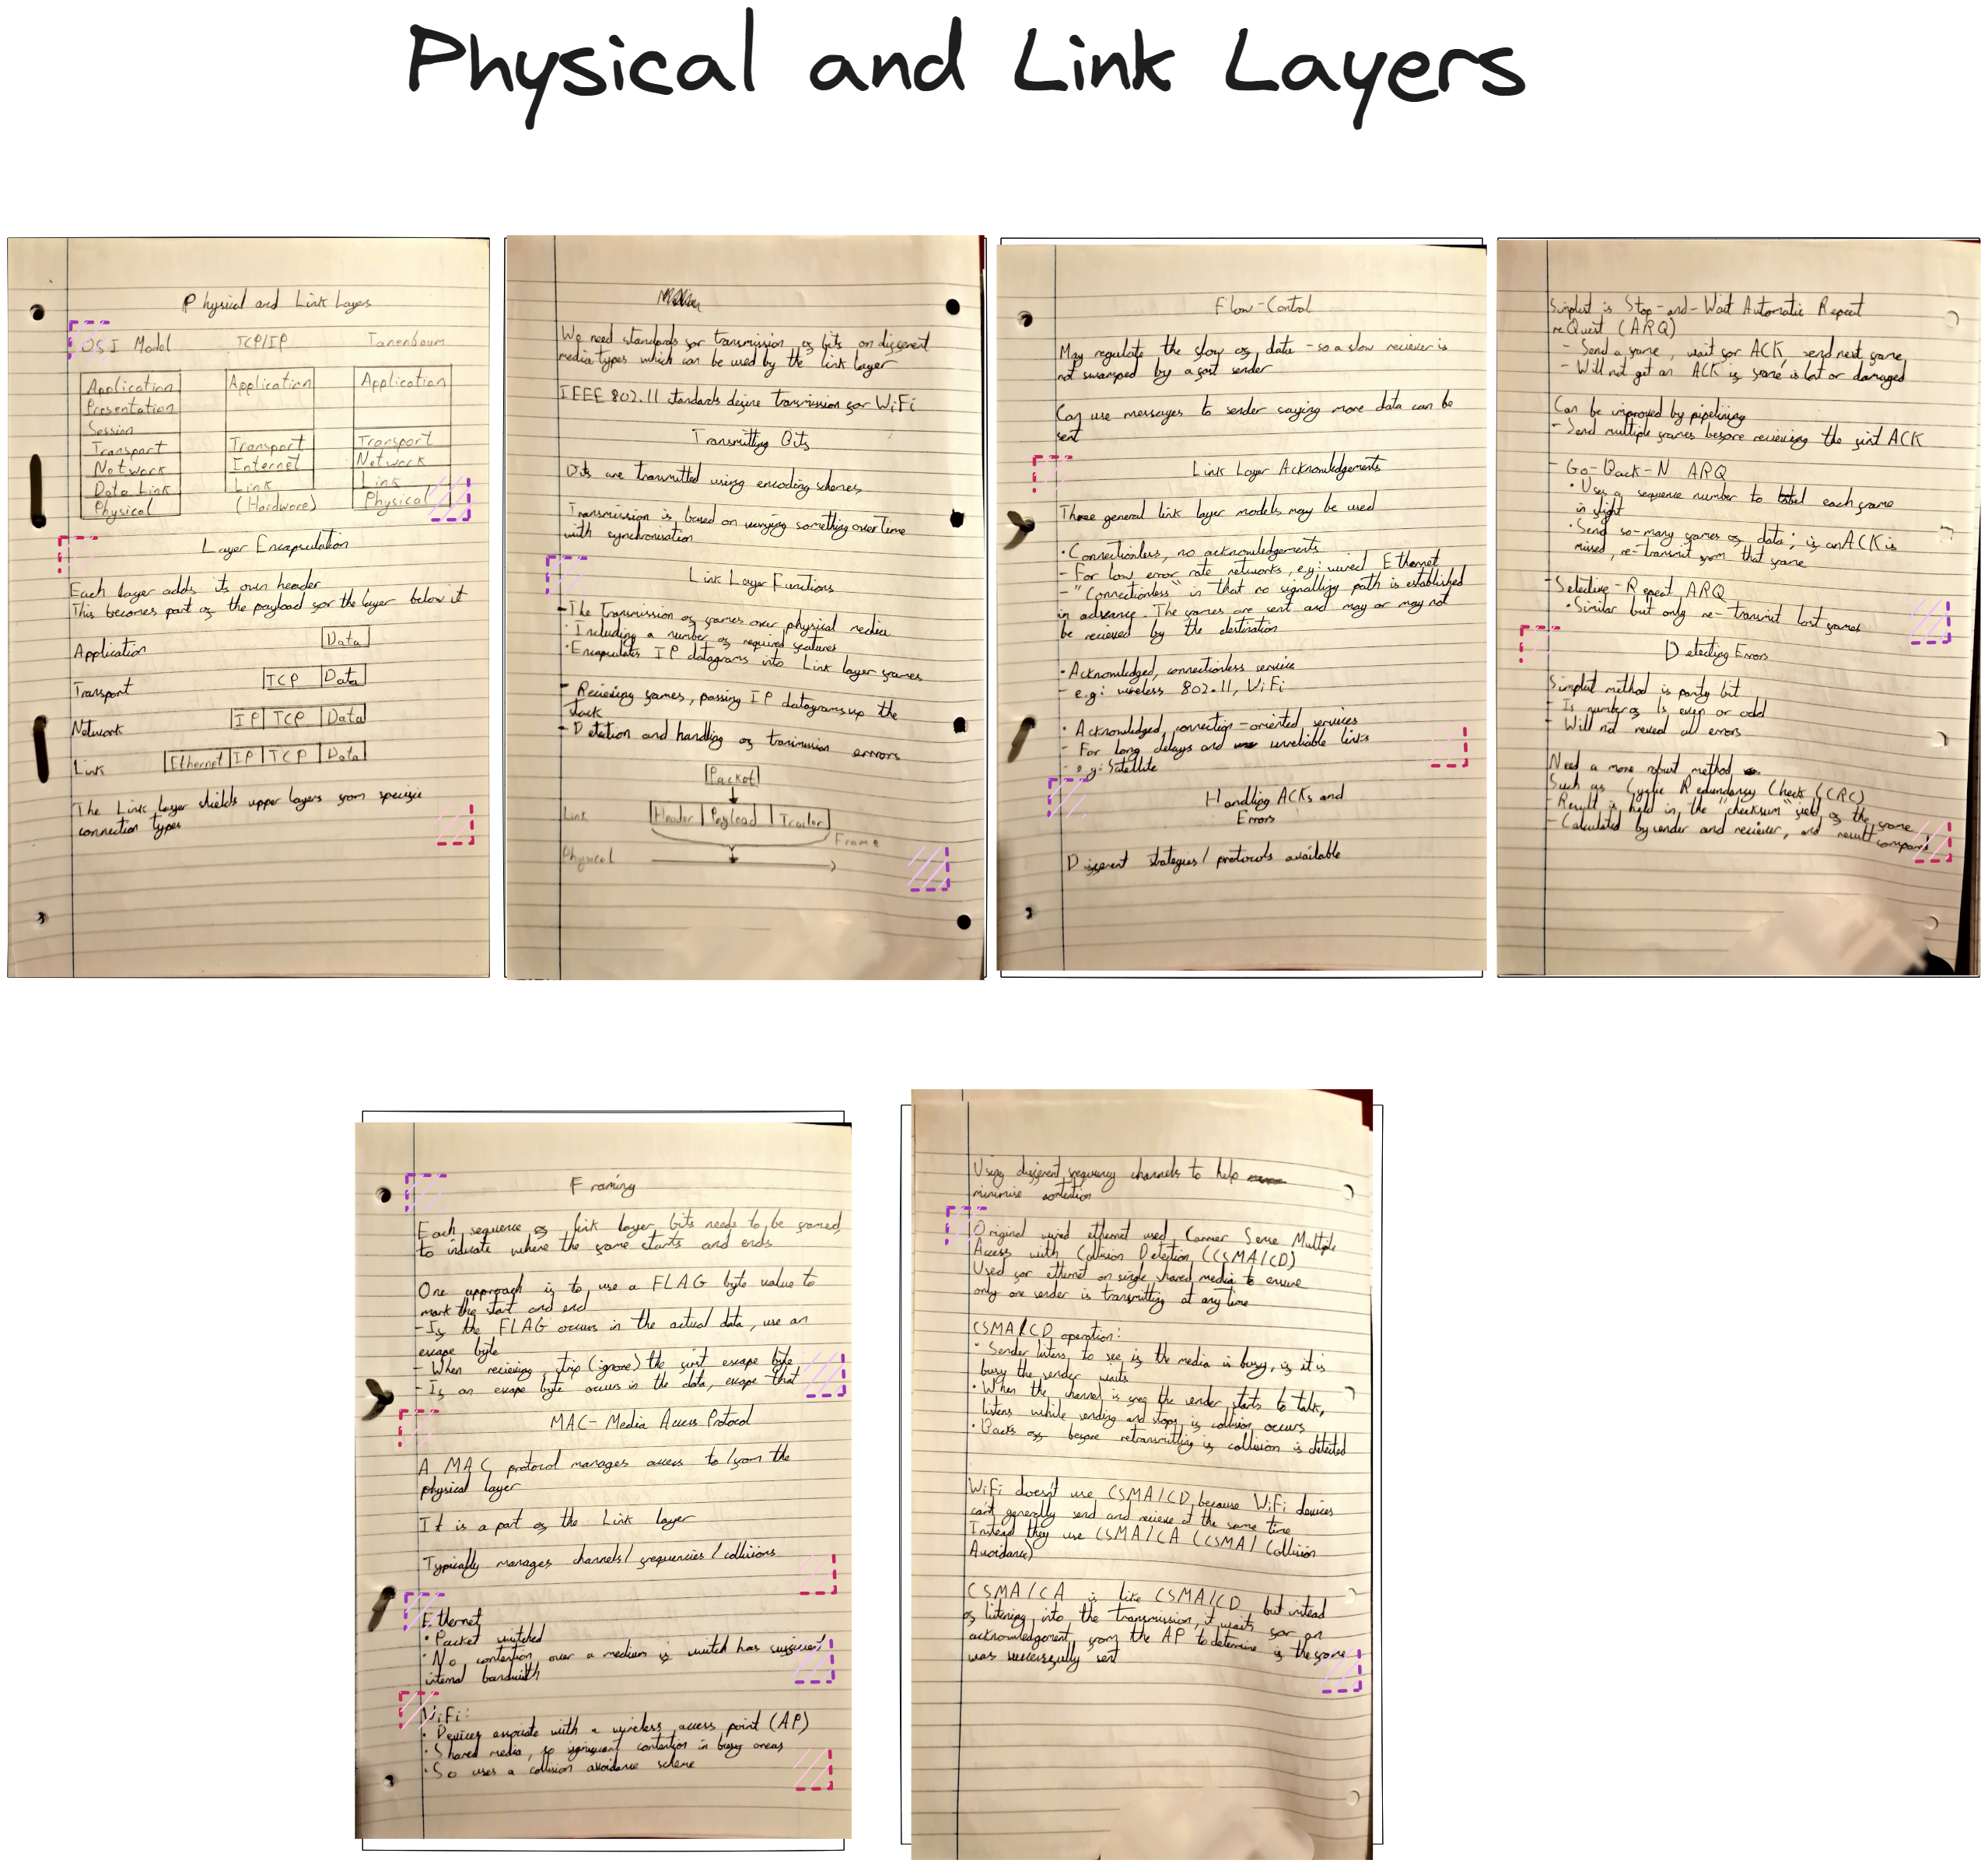 Physical and Link Layers
Physical and Link Layers
OSI Model TCP/IP Tanenbaum
Application Application Application
Presentation
Session
Transport Transport Transport
Network Internet Network
Data Link Link Link
Physical (Hardware) Physical
Layer Encapsulation
Each layer adds its own header
This becomes part of the payload for the layer below it
Application Data
Transport TCP Data
Network IP TCP Data
Link Ethernet IP TCP Data
The Link layer shields upper layers from specific
connection types
We need standards for transmission of bits on different
media types which can be used by the link layer
IEEE 802.11 standards define transmission for WiFi
Transmitting Bits
Bits are transmitted using encoding schemes
Transmission is based on varying something over time
with synchronisation
Link Layer Functions
- The Transmission of frames over physical media
· Including a number of required features
· Encapsulates IP datagrams into Link layer frames
- Recieving frames, passing IP datagrams up the
stack
- Detection and handling of transmission errors
Packet
Link Header Payload Trailer
Frame
Physical
Flow-Control
May regulate the flow of data - so a slow reciever is
not swamped by a fast sender
Can use messages to sender saying more data can be
sent
Link Layer Acknowledgements
Three general link layer models may be used
· Connectionless, no acknowledgements
- For low error rate networks, e.g: wired Ethernet
- "Connectionless" in that no signalling path is established
in advance. The frames are sent and may or may not
be recieved by the destination
· Acknowledged, connectionless service
- e.g: wireless 802.11, WiFi
· Acknowledged, connection-oriented services
- For long delays and unreliable links
- e.g: Satellite
Handling ACKs and
Errors
Different strategies/protocols available
Simplest is Stop-and-Wait Automatic Repeat
reQuest (ARQ)
- Send a frame, wait for ACK, send next frame
- Will not get an ACK if frame is lost or damaged
Can be improved by pipelining
- Send multiple frames before recieving the first ACK
- Go-Back-N ARQ
· Uses a sequence number to label each frame
in flight
· Send so-many frames of data; if an ACK is
missed, re-transmit from that frame
- Selective-Repeat ARQ
· Similar but only re-transmit lost frames
Detecting Errors
Simplest method is parity bit
- Is number of 1s even or odd
- Will not reveal all errors
Need a more robust method
Such as Cyclic Redundancy Check (CRC)
- Result is held in the "checksum" field of the frame
- Calculated by sender and reciever, and result compared
Framing
Each sequence of link layer bits needs to be framed,
to indicate where the frame starts and ends
One approach is to use a FLAG byte value to
mark the start and end
- If the FLAG occurs in the actual data, use an
escape byte
- When recieving, strip (ignore) the first escape byte
- If an escape byte occurs in the data, escape that
MAC - Media Access Protocol
A MAC protocol manages access to/from the
physical layer
It is a part of the Link layer
Typically manages channels/frequencies/collisions
Ethernet
· Packet switched
· No contention over a medium if switch has sufficient
internal bandwidth
WiFi:
· Devices associate with a wireless access point (AP)
· Shared media, so significant contention in busy areas
· So uses a collision avoidance scheme
Using different frequency channels to help
minimise contention
Original wired ethernet used Carrier Sense Multiple
Access with Collision Detection (CSMA/CD)
Used for ethernet on single shared media to ensure
only one sender is transmitting at any time
CSMA/CD operation:
· Sender listens to see if the media is busy, if it is
busy the sender waits
· When the channel is free the sender starts to talk,
listens while sending and stops if collision occurs
· Backs off before retransmitting if collision is detected
WiFi doesn't use CSMA/CD because WiFi devices
can't generally send and recieve at the same time
Instead they use CSMA/CA (CSMA/Collision
Avoidance)
CSMA/CA is like CSMA/CD but instead
of listening into the transmission, it waits for an
acknowledgement from the AP to determine if the frame
was successfully sent